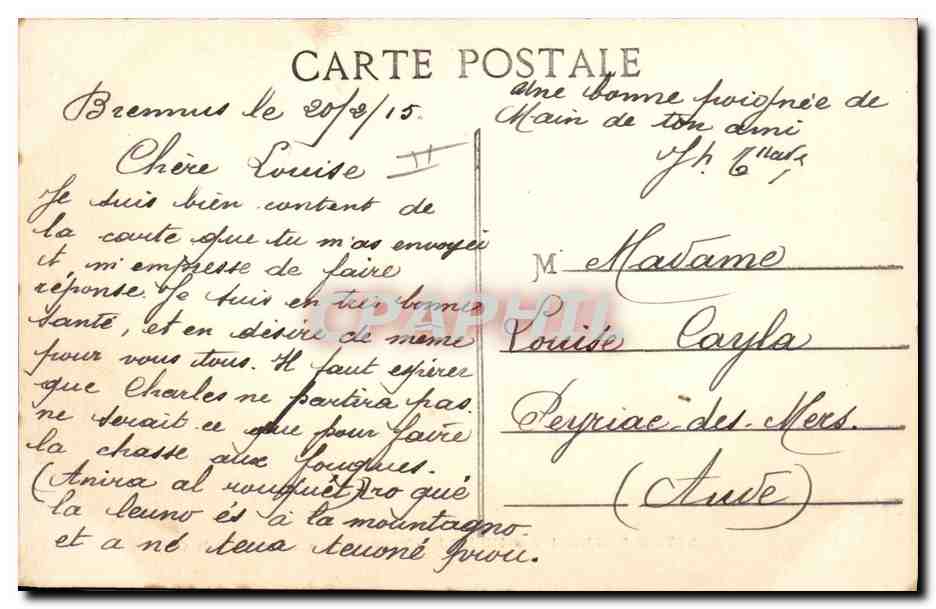 CARTE POSTALE
Bremus le 20/2/15.
Chère Louise
Je suis bien content de
la carte que tu m'as envoyéi
et m'empresse de faire
réponse. Je suis en très bonne
santé, et en désire de meme
pour vous tous. Il faut espérer
que Charles ne partira pas
ne serait ce que pour faire
la chasse aux fouques.
(Anira al rouquêt) ro qué
la leuno és à la mountagno
et a né teua teuoné
une bonne poignée de
Main de ton ami
Jh.
M Madame
Louise Cayla
Peyriac-des-Mers.
(Aude)
CPAPHIL